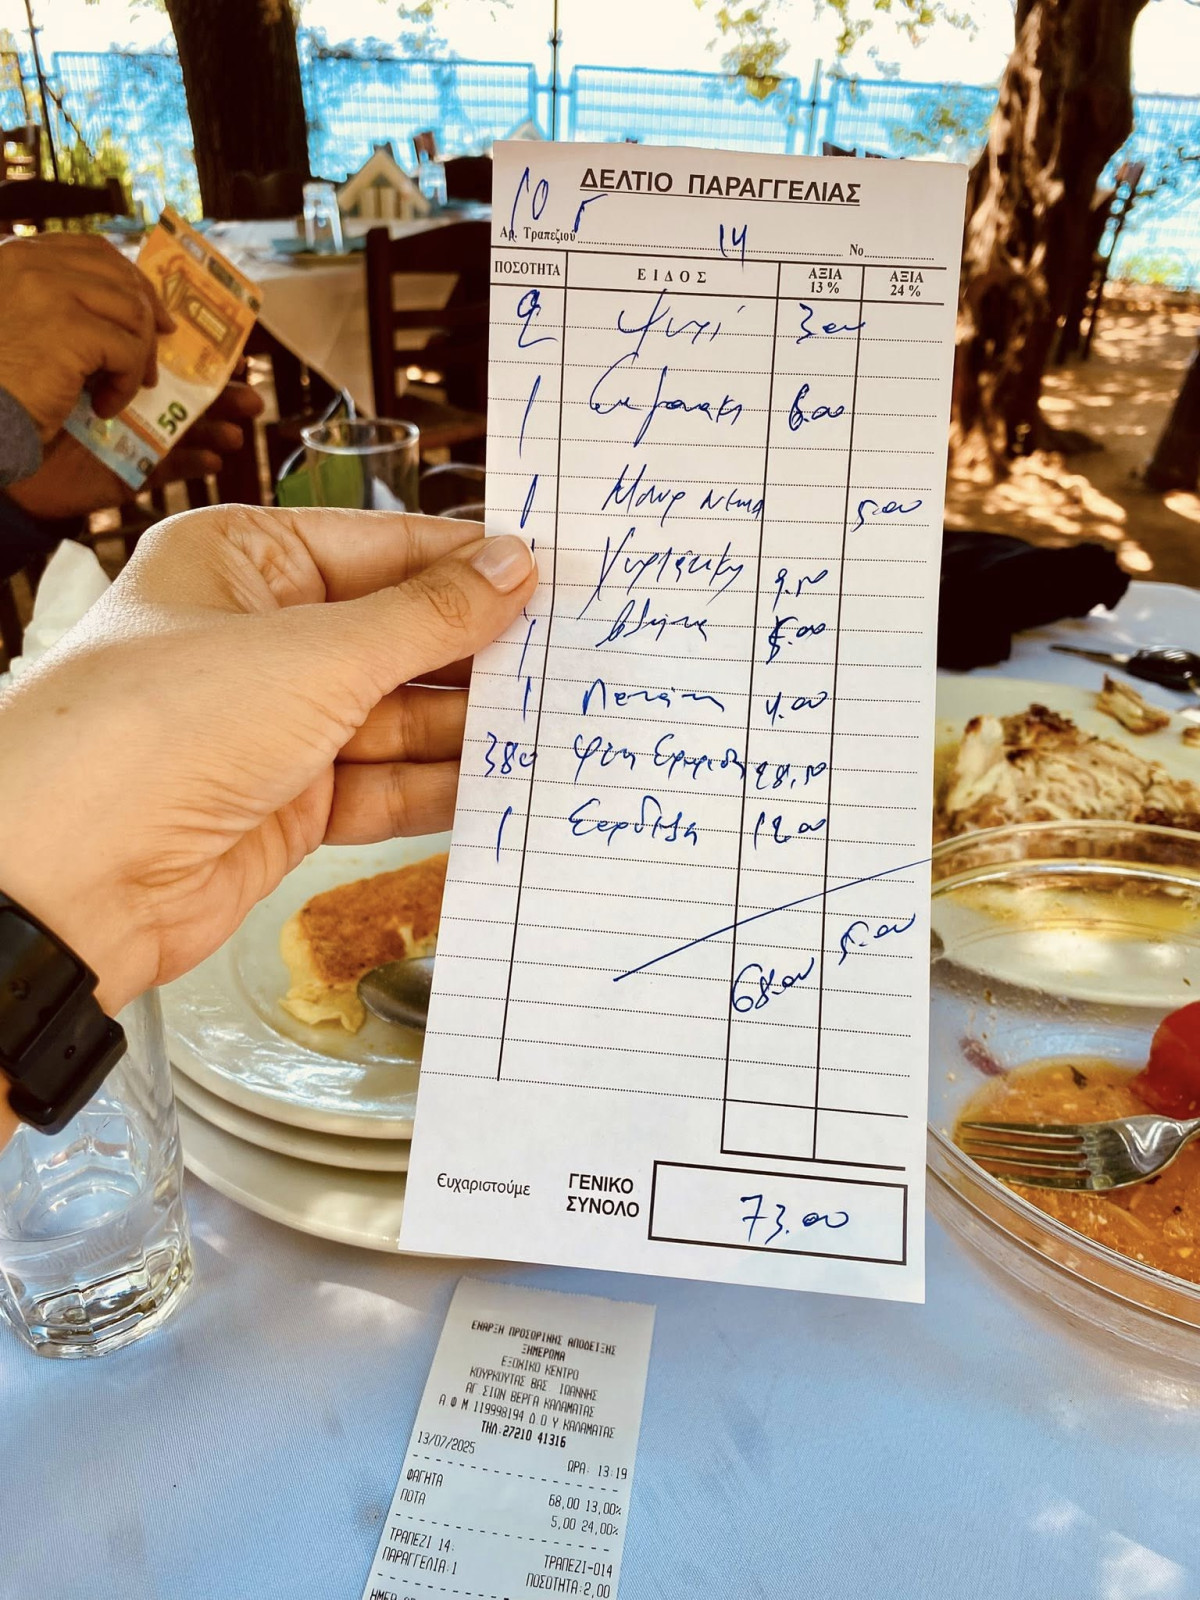 ΔΕΛΤΙΟ ΠΑΡΑΓΓΕΛΙΑΣ
10 Γ
Αρ. Τραπεζιού 14 Νο
ΠΟΣΟΤΗΤΑ ΕΙΔΟΣ ΑΞΙΑ 13 % ΑΞΙΑ 24 %
2 Ψωμί 3.00
1 6.00
1 5.00
9.50
1 Βλήτα 5.00
1 Πατάτα 4.00
380 28,50
1 12.00
5.00
68.00
Ευχαριστούμε ΓΕΝΙΚΟ ΣΥΝΟΛΟ 73.00
50
ΕΝΑΡΞΗ ΠΡΟΣΩΡΙΝΗΣ ΑΠΟΔΕΙΞΗΣ
ΞΗΜΕΡΩΜΑ
ΕΞΟΧΙΚΟ ΚΕΝΤΡΟ
ΚΟΥΡΚΟΥΤΑΣ ΒΑΣ. ΙΩΑΝΝΗΣ
ΑΓ. ΣΙΩΝ ΒΕΡΓΑ ΚΑΛΑΜΑΤΑΣ
Α Φ Μ 119998194 Δ Ο Υ ΚΑΛΑΜΑΤΑΣ
ΤΗΛ:27210 41316
13/07/2025 ΩΡΑ: 13:19
ΦΑΓΗΤΑ 68,00 13,00%
ΠΟΤΑ 5,00 24,00%
ΤΡΑΠΕΖΙ 14: ΤΡΑΠΕΖΙ-014
ΠΑΡΑΓΓΕΛΙΑ:1 ΠΟΣΟΤΗΤΑ:2,00